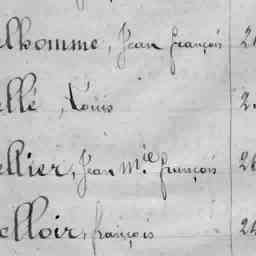 lhomme, Jean françois 2
ellé, Louis 2
ellier, Jean Mie françois 26
elloir, françois 24